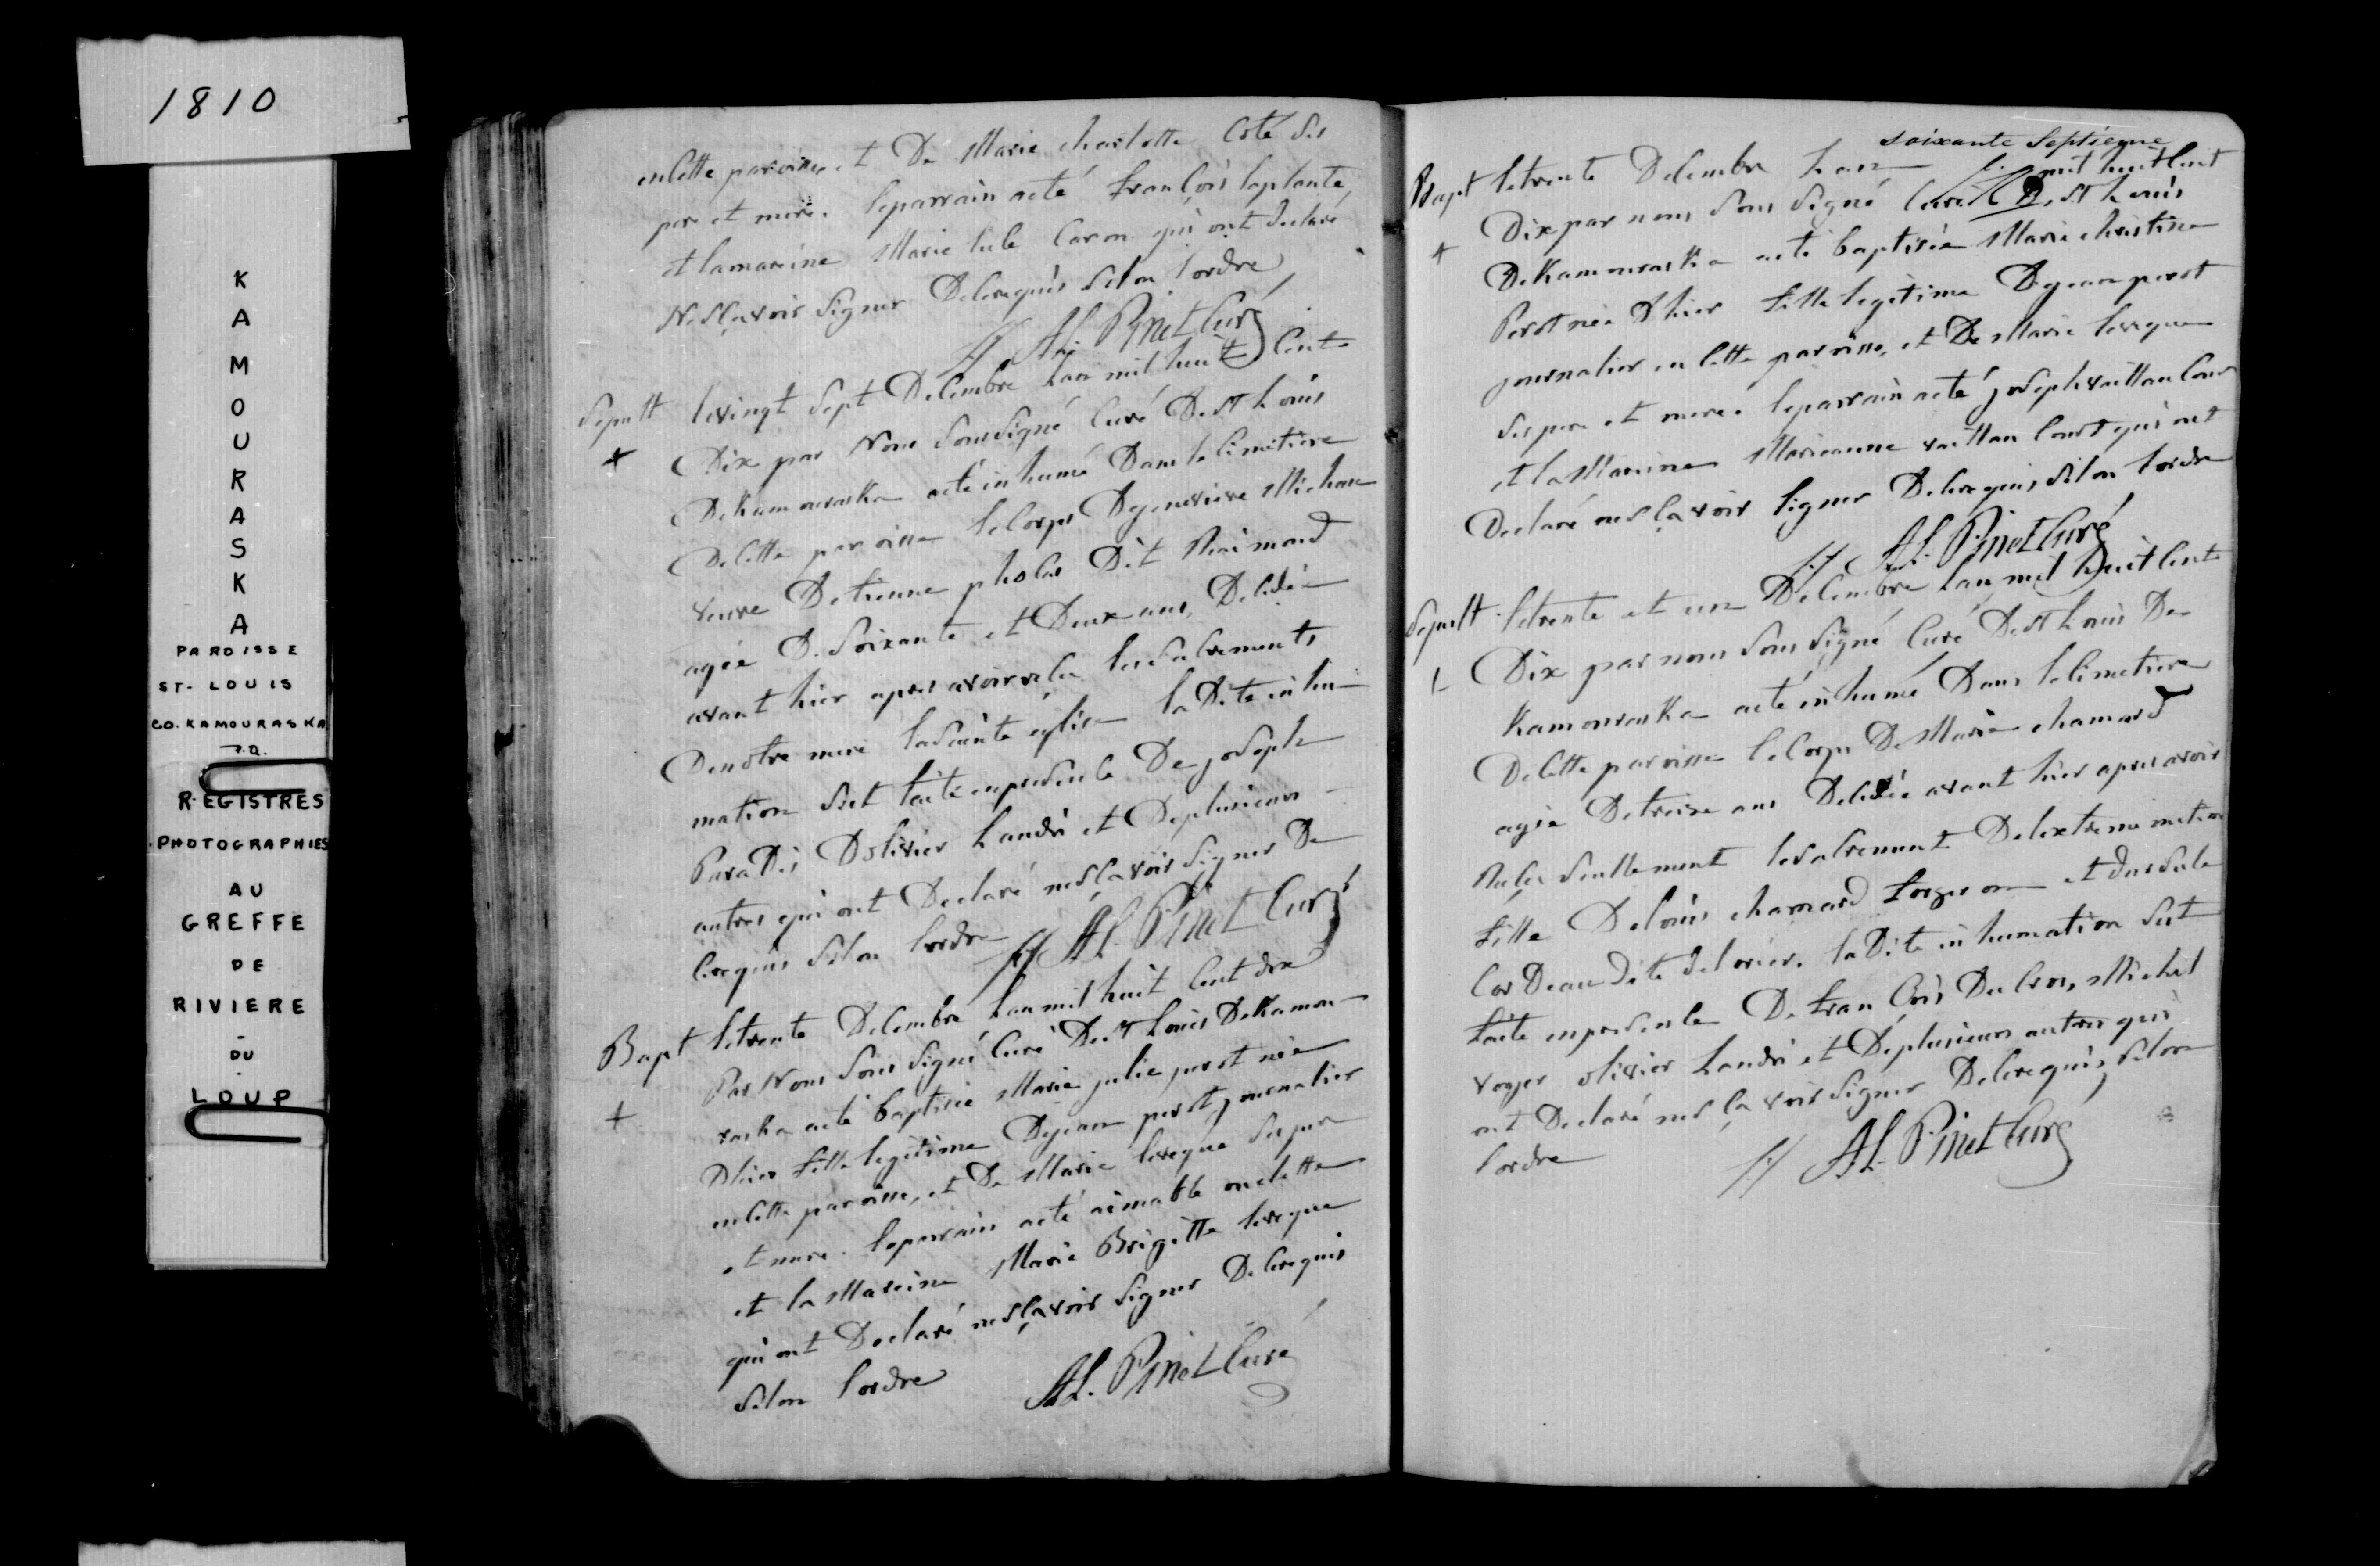 1810
K
A
M
O
U
R
A
S
K
A
PAROISSE
ST-LOUIS
CO. KAMOURASKA
P.Q.
REGISTRES
PHOTOGRAPHIES
AU
GREFFE
DE
RIVIERE
-
DU
-
LOUP
en cette paroisse, et De Marie charlotte Coté Ses
pere et mere. le parrain a eté françois laplante,
et la mareine Marie Caron qui ont declaré
Ne Sçavoir Signer De ce requis Selon l'ordre
AL. Pinet Curé
Sepult le vingt Sept Decembre L'an mil huit Cents
Dix par Nous Soussigné Curé De St Louis
De Kamouraska a eté inhumé Dans le Cimetiere
De Cette paroisse le Corps De genevieve Michau
veuve D'etienne pholis Dit Raimond
agée De Soixante et Deux ans, Decedée
avant hier apres avoir reçu les Sacrements
De nôtre mere la Sainte église la Dite inhu-
mation S'est faite en presence De Joseph
ParaDis D'olivier Landri et De plusieurs -
autres qui ont Declaré ne Sçavoir Signer De
Ce requis Selon l'ordre AL. Pinet Curé
Bapt le trente Decembre L'an mil huit Cent dix
Par Nous Sous Signé Curé De St Louis De Kamou-
raska a eté baptisée Marie julie perot née
D'hier fille legitime De jean perot journalier
en Cette paroisse, et De Marie leveque Ses pere
et mere. le parrain a eté aimable ouelette
et la Mareine Marie Brigitte leveque
qui ont Declaré ne Sçavoir Signer De Ce requis
Selon l'ordre AL. Pinet Curé
soixante Septieme
Bapt le trente Decembre L'an mil huit Cent
Dix par nous Sous Signé Curé De St Louis
De Kamouraska a eté baptisée Marie christine
Perot née D'hier fille legitime De jean perot
journalier en Cette paroisse, et De Marie leveque
Ses pere et mere. le parrain a eté joseph vaillancour
et la Mareine Marieanne vaillancourt qui ont
Declaré ne Sçavoir Signer De Ce requis, Selon l'ordre
AL. Pinet Curé
Sepult le trente et un Decembre L'an mil huit Cents
Dix par nous Sous Signé Curé De St Louis De
Kamouraska a eté inhumé Dans le Cimetiere
De Cette paroisse le Corps De Marie chamard
agée De treize ans Decedée avant hier apres avoir
Reçu Seullement le Sacrement De l'extreme onction
fille De Louis chamard forgeron et d'ursule
CorDeau dite Delorier. la Dite inhumation S'est
faite en presence De françois Ducros, Michel
voyer olivier Landri et De plusieurs autres qui
ont Declaré ne Sçavoir Signer De Ce requis, Selon
l'ordre AL. Pinet Curé